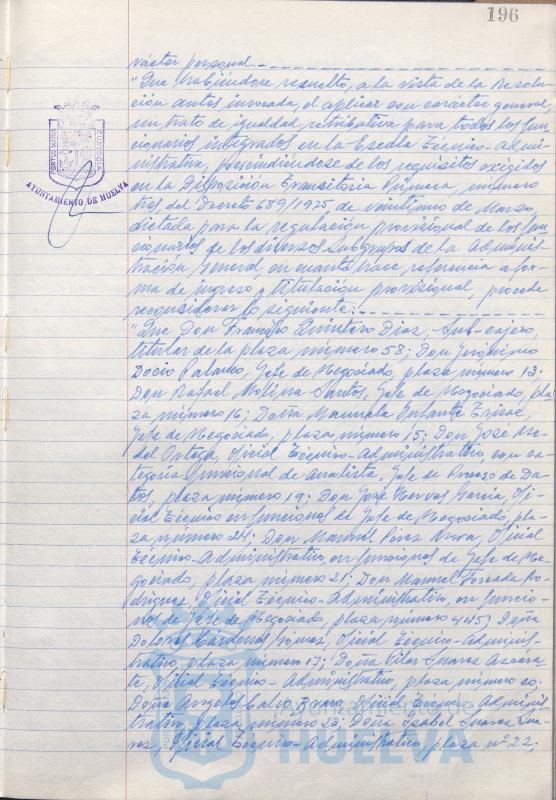 196
rácter personal.
"Que habiéndose resuelto, a la vista de la Resolu-
ción antes invocada, el aplicar con carácter general,
un trato de igualdad retributiva para todos los fun-
cionarios integrados en la Escala Técnico-Admi-
nistrativa, prescindiéndose de los requisitos exigidos
en la Disposición Transitoria Primera, número
tres del Decreto 689/1975, de veintiuno de Marzo,
dictada para la regulación provisional de los fun-
cionarios de los diversos Subgrupos de la Adminis-
tración General, en cuanto hace referencia a for-
ma de ingreso y titulación provisional, procede
reconsiderar lo siguiente:
"Que Don Francisco Quintero Diaz, Sub-cajero,
titular de la plaza número 58; Don Jerónimo
Docio Jefe de Negociado, plaza número 13;
Don Rafael Molina Santos, Jefe de Negociado, pla-
za número 16; Doña Manuela Infante
Jefe de Negociado, plaza número 15; Don José
Ortega, Oficial Técnico-Administrativo con ca-
tegoría funcional de Analista, Jefe de Proceso de Da-
tos, plaza número 19; Don José Hervas García, Ofi-
cial Técnico en funciones de Jefe de Negociado, pla-
za número 24; Don Manuel Pérez Oficial
Técnico-Administrativo en funciones de Jefe de Ne-
gociado, plaza número 21; Don Manuel Ro-
dríguez, Oficial Técnico-Administrativo, en funcio-
nes de Jefe de Negociado, plaza número 445; Doña
Dolores Cárdenas Gómez, Oficial Técnico-Adminis-
trativo, plaza número 17; Doña Pilar Suarez Azcára-
te, Oficial Técnico-Administrativo, plaza número 20.
Doña Angeles Calvo Oficial Técnico Administ
trativo, plaza número 23; Doña Isabel Suarez Sua-
rez, Oficial Técnico-Administrativo, plaza nº 22;
AYUNTAMIENTO DE HUELVA
Ayuntamiento de
HUELVA